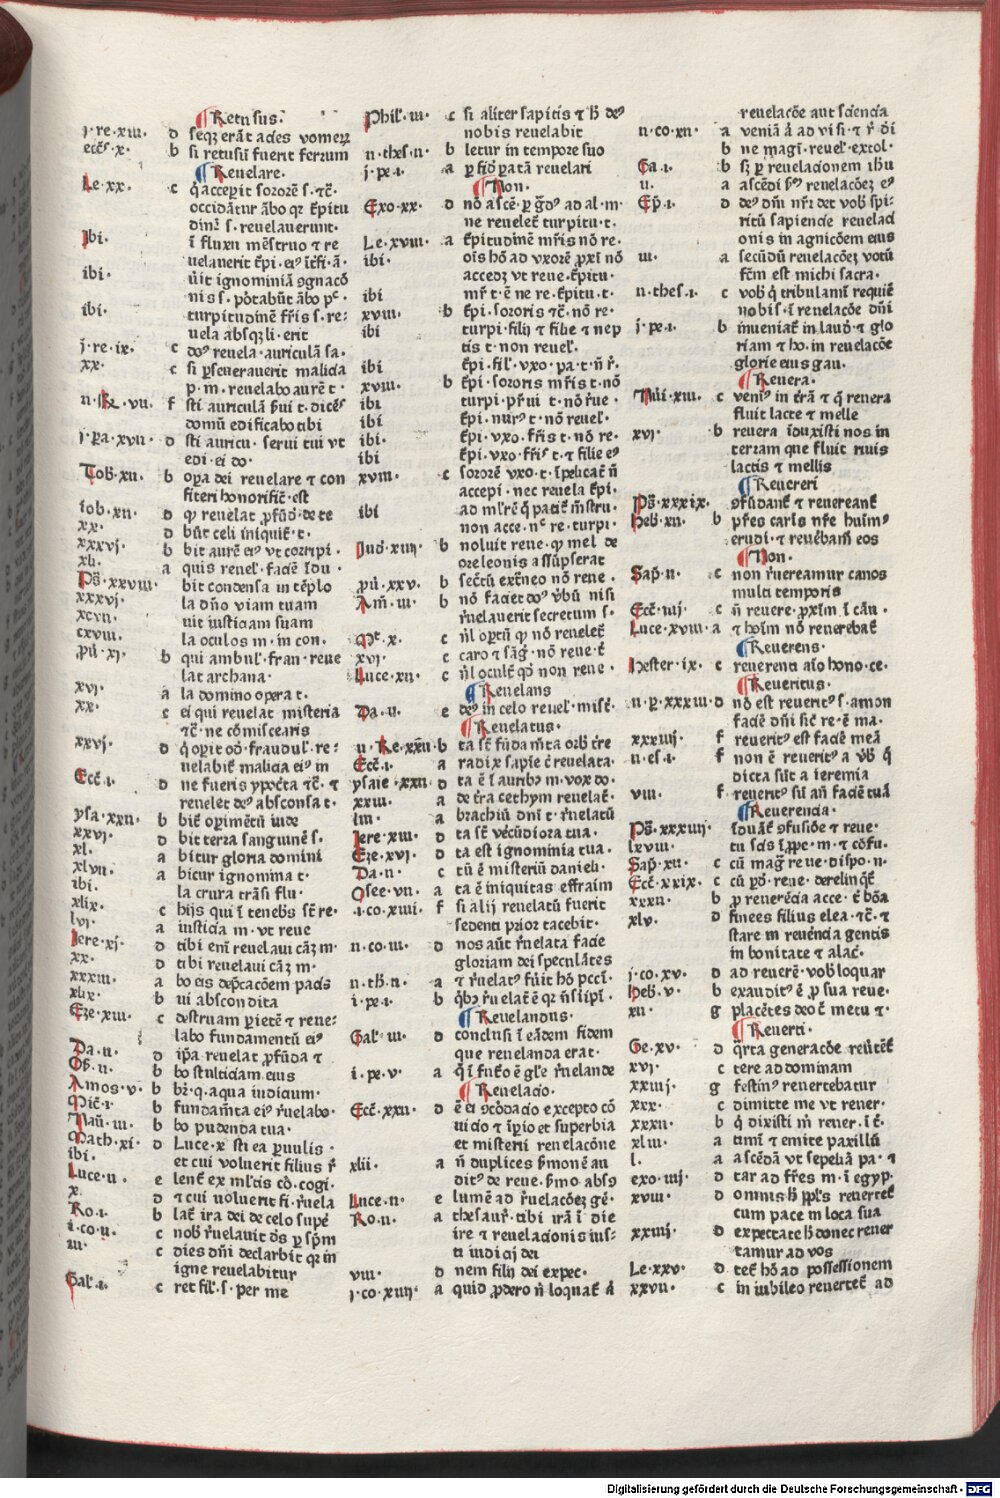 Retusus.
j·re·xiii· d seqȝ erāt acies vomerȝ
eccs·x· b si retusū fuerit ferrum
Reuelare·
Le·xx· c q̄ acceperit sororē s·⁊c̄·
occidātur ābo qȝ t̄pitu
dinē s·reuelauerunt·
Ibi· ī fluxu mēstruo ⁊ re
uelauerit t̄pi·
ibi· uīt ignominiā ꝯgnacō
nis s·pōtabūt ābo pc̄·
ibi· turpitudinē fr̄is s·re·
uela absqȝ li·erit
j·re·ix· c doȝ reuela·auriculā sa·
xx· c si ꝑseuerauerit malicia
p·m·reuelabo aurē t·
ii·Re·vii· f sti auriculā
domū edificabo tibi
j·pa·xvii· d sti auricu·serui tui vt
edi·ei do·
Tob·xii· b oꝑa dei reuelare ⁊ con
fiteri honorific̄·est
iob·xii· d qȝ reuelat ꝓfūd·de te
xx· d būt celi iniquit̄·t·
xxxvj· b bit aurē eiꝰ vt corripi·
xli· a quis reuel·faciē īdu·
Ps̄·xxviii· bit condensa in tēplo
xxxvj· la dn̄o viam tuam
xcvii· uit iusticiam suam
cxviii· la oculos m·in con·
pū·xj· b qui ambul·fran·reue
lat archana·
xvj· a la domino opera t·
xx· c ei qui reuelat misteria
⁊c̄·ne cōmiscearis
xxvj· d q̄ oꝑit od·fraudul·re·
uelabit̄ malicia eiꝰ in
Ecc̄·i· d ne fueris ypoc̄ta ⁊c̄·⁊
reuelet deꝰ absconsa t·
ysa·xxii· b bit̄ oꝑimētū iude
xxvj· d bit terra sanguinē s·
xl· a bitur gloria domini
xlvii· a bitur ignomina t·
ibi· la crura trāsi flu·
xlix· c hijs qui ī tenebs̄ st̄ re·
lvj· a iusticia m·vt reue
Iere·xj· d tibi em̄ reuelaui cāȝ m·
xx· d tibi reuelaui cāȝ m·
xxxiii· a bo eis dep̄cacōem pacis
xlix· b ui abscondita
Eze·xiii· c destruam ꝑietē ⁊ reue·
labo fundamentū eiꝰ
Da·ii· d ip̄a reuelat ꝓfūda ⁊
Os̄·ii· b bo stulticiam eius
Amos·v· b bȝ·q·aqua iudicum·
Mic̄·i· b fundam̄ta eiꝰ r̄uelabo·
Naū·iii· b bo pudenda tua·
Math·xi· d Luce·x sti ea ꝑuulis·
ibi· et cui voluerit filius r̄
Luce·ii· e lent̄ ex ml̄tis cō·cogi·
x· d ⁊ cui uoluerit fi·r̄uela
Ro·i· b lat̄ ira dei de celo supē
i·co·ii· c nob̄ r̄uelauit ds̄ ꝑ sp̄m
iii· c dies dn̄i declarbit qȝ in
igne reuelabitur
Gal̄·i· c ret fil·s·per me
Phil̄·iii· c si aliter sapitis ⁊ h̄ deꝰ
nobis reuelabit
ii·thes·ii· b letur in tempore suo
j·pe·i· a ꝑ fid̄ ꝑatā reuelari
Non·
Exo·xx· d nō ascē·ꝑ gᵈꝰ ad al·m·
ne reuelet̄ turpitu·t·
Le·xviii· a t̄pitudinē mr̄is nō re·
ibi· oīs hō ad vxorē ꝓxī nō
accedȝ vt reue·t̄pitu·
ibi mr̄ t·ē ne re·t̄pitu·t·
xviii· b t̄pi·sororis ⁊c̄·nō re·
ibi turpi·filij ⁊ filie ⁊ nep
tis t·non reuel̄·
ibi t̄pi·fil̄·vxo·pa·t·n̄ r̄·
xviii· b t̄pi·sororis mr̄is t·nō
ibi turpi·pr̄ui t·nō r̄ue·
ibi t̄pi·nurꝰ t·nō reuel̄·
ibi· t̄pi·vxo·fr̄is t·nō re·
ibi t̄pi·vxo·fr̄is t·⁊ filie eꝰ
xviii· c sororē vxo·t·ī pelicat̄ n̄
accepi·nec reuela t̄pi·
ibi ad ml̄rē q̄ patit̄ m̄stru·
non acce·nᶜ re·turpi·
Iud·xiij· b noluit reue·qȝ mel de
ore leonis assūpserat
pū·xxv· b secr̄tū extēo nō rene·
Am̄·iii· b nō faciet doꝰ v̄bū nisi
r̄uelauerit secretum s·
Mt̄·x· c nl̄ oꝑtū qȝ nō reuelet̄
xvj· c caro ⁊ sāg·nō reue·t̄
Luce·xii· c nl̄ ocult̄ qd̄ non reue·
Reuelans
Da·ii· e deꝰ in celo reuel·mist̄·
Reuelatus·
ii·Re·xxii· b ta st̄ fūdam̄ta orb̄ t̄re
Ecc̄·i· a radix sapīe c̄ reuelata·
ysaie·xxii· d ta ē ī auribȝ m·vox do·
xxiii· a de t̄ra cethym reuelat̄·
liii· a brachiū dnī t·r̄uelatū
Iere·xiii· d ta st̄ vecūdiora tua·
Eze·xvj· d ta est ignominia tua·
Da·ii· c tū ē misteriū danieli·
Osee·vii· a ta ē iniquitas effraim
i·co·xiiii· f si alij reuelatū fuerit
sedenti prior tacebit·
ii·co·iii· d nos aūt r̄uelata facie
gloriam dei speculātes
ii·th̄·ii· a ⁊ r̄uelatꝰ fūit hō pccī·
i·pe·i· b q̄bȝ r̄uelat̄ ē qȝ n̄ sīipī·
Reuelandus·
Gal̄·iii· d conclusi ī eādem fidem
que reuelanda erat·
i·pe·v· a q̄ ī fut̄o ē gl̄e r̄uelande
Reuelacio·
Ecc̄·xxii· d ē ei ꝯcōdacio excepto cō
uicio ⁊ īꝓio et superbia
et misterii reuelacōne
xlii· a n̄ duplices s̄monē au
ditꝰ de reue·s̄mo absꝯ
Luce·ii· e lumē ad r̄uelacōeȝ gē·
Ro·ii· a thesaur̄·tibi irā ī die
ire ⁊ reuelacionis ius·
ti iudicij dei
viii· d nem filij dei expec·
j·co·xiiij· a quid ꝓdero n̄ loquat̄ ā
reuelacōe aut sciencia
ii·co·xii· a veniā ā ad visi·⁊ r̄ dī
b ne magī·reuel̄·extol·
Ga·i· b sȝ ꝑ reuelacionem ih̄u
ii· a ascēdi scꝰ reuelacōeȝ eꝰ
Ep̄·i· d deꝰ dnī nr̄i det vob̄ spi·
ritū sapiencie reuelaci
onis in agnicōem eius
iii· a secūdū reuelacōeȝ notū
fcm̄ est michi sacra·
ii·thes·i· c vob̄ q̄ tribulamī requiē
nobis·ī reuelacōe dn̄i
j·pe·i· b inueniat̄ in laud̄·⁊ glo
riam ⁊ ho·in reuelacōe
glorie eius gau·
Reuera·
Nūi·xiii· c venīꝰ in t̄rā ⁊ q̄ reuera
fluit lacte ⁊ melle
xvj· b reuera īduxisti nos in
terram que fluit riuis
lactis ⁊ mellis
Reuereri
Ps̄·xxxix· ꝯfūdant̄ ⁊ reuereant̄
Heb̄·xii· b pr̄es carīs nr̄e huīmꝰ
erudi·⁊ reuēbam̄ eos
Non·
Sap̄·ii· c non r̄uereamur canos
multi temporis
Ecc̄·iiij· c n̄ reuere·ꝓxīm ī cāu·
Luce·xviii·a ⁊ hoīm nō reuerebat̄
Reuerens·
Hester·ix· c reuerenti aīo hono·ce·
Reueritus·
ii·p·xxxiii·d nō est reueritꝰ s·amon
faciē dn̄i sic̄ re·ē ma·
xxxiiij· f reueritꝰ est faciē meā
ii·es·i· f non ē reueritꝰ a v̄b̄ q̄
dicta sūt a ieremia
viii· f reueritꝰ sū an̄ faciē tuā
Reuerencia·
Ps̄·xxxiiij· īduāt̄ ꝯfusiōe ⁊ reue·
lxviii· tu scis īꝓꝑe·m·⁊ cōfu·
Sap̄·xii· c cū maḡ reue·dispo·n·
Ecc̄·xxix· c cū pd̄·reue·derelinq̄t̄
xxxii· b ꝓ reuerēcia acce·t̄ bōa
xlv· d finees filius elea·⁊c̄·⁊
stare in reuēncia gentis
in bonitate ⁊ alac̄·
j·co·xv· d ad reuerē·vob̄ loquar
Heb̄·v· b exauditꝰ ē ꝓ sua reue·
xii· g placētes deo c̄ metu ⁊·
Reuerti·
Ge·xv· d q̄rta generacōe reūtēt̄
xvj· c tere ad dominam
xxiiij· g festinꝰ reuertebatur
xxx· c dimitte me vt reuer·
xxxii· b q̄ dixisti m̄ reuer·ī t̄·
xliii· a timī ⁊ emite paxillū
l· a ascēdā vt sepeliā pa·⁊
exo·iiij· d tar ad fr̄es m·ī egyp·
xviii· d omnis h̄ ppl̄s reuertet̄
cum pace in loca sua
xxiiij· d expectate h̄ donec reuer
tamur ad vos
Le·xxv· d tet̄ hō ad possessionem
xxvii· c in iubileo reuertet̄ ad
Digitalisierung gefördert durch die Deutsche Forschungsgemeinschaft - DFG